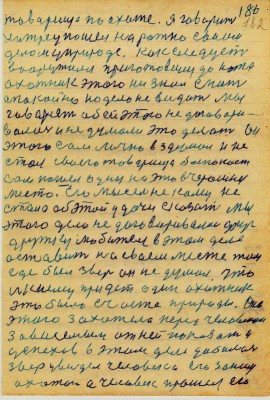 186
182
товарища по охоте. Я говорит
хитрец пошел на ровно своим
делом в природе. Как следует
вооружился приготовился до ката
охотник этого ни знал спит
спокайно поделоне видит мы
говорять об етэтого не договари-
вались и не думали это делать он
этого сам лично вздумал и не
стал своего товарища беспокоит
сам пошел один на эту вчерашню
место. Его мысели не кому не
стала об этой удачи сказат мы
этого дело не договаривались друг
другу любители в этом деле
оставит на своем месте там
где был зверь он не думал, что
к нему придет один охотник
это было счастя природы. Она
этого захотела перед человеком
зависемым от ней показат и
успехов в этом деле добился
зверь увидел человека его занял
охотой а человек прошел его